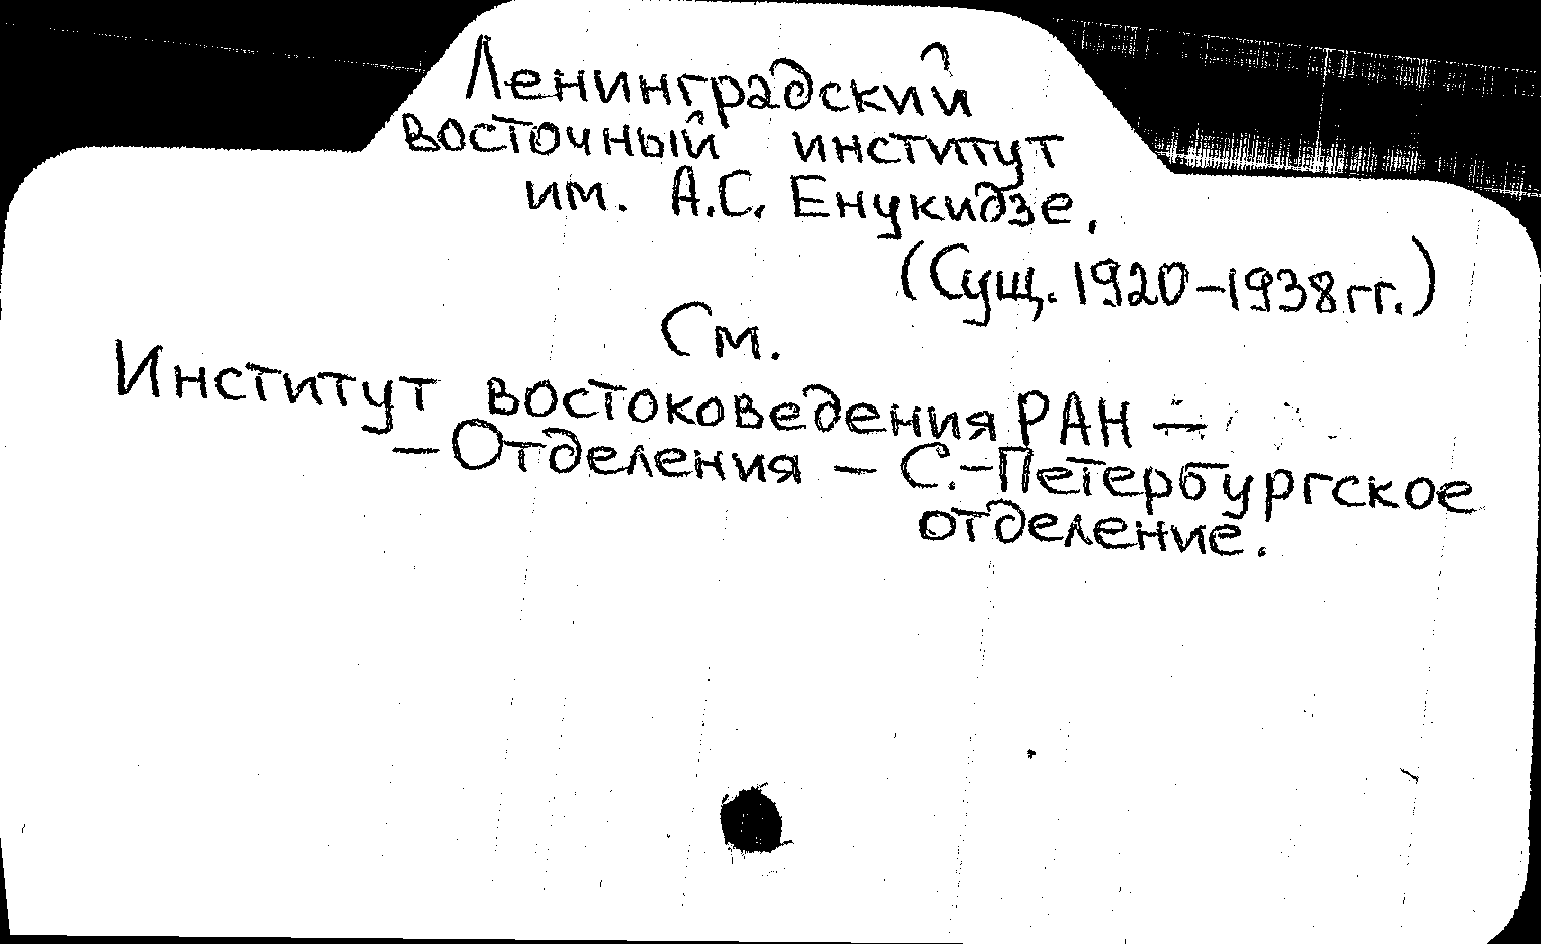 Ленинградский
восточный институт
им. А.С. Енукидзе.
(Сущ. 1920-1938гг.)
См.
Институт востоковедения РАН —
— Отделения — С.-Петербургское
отделение.